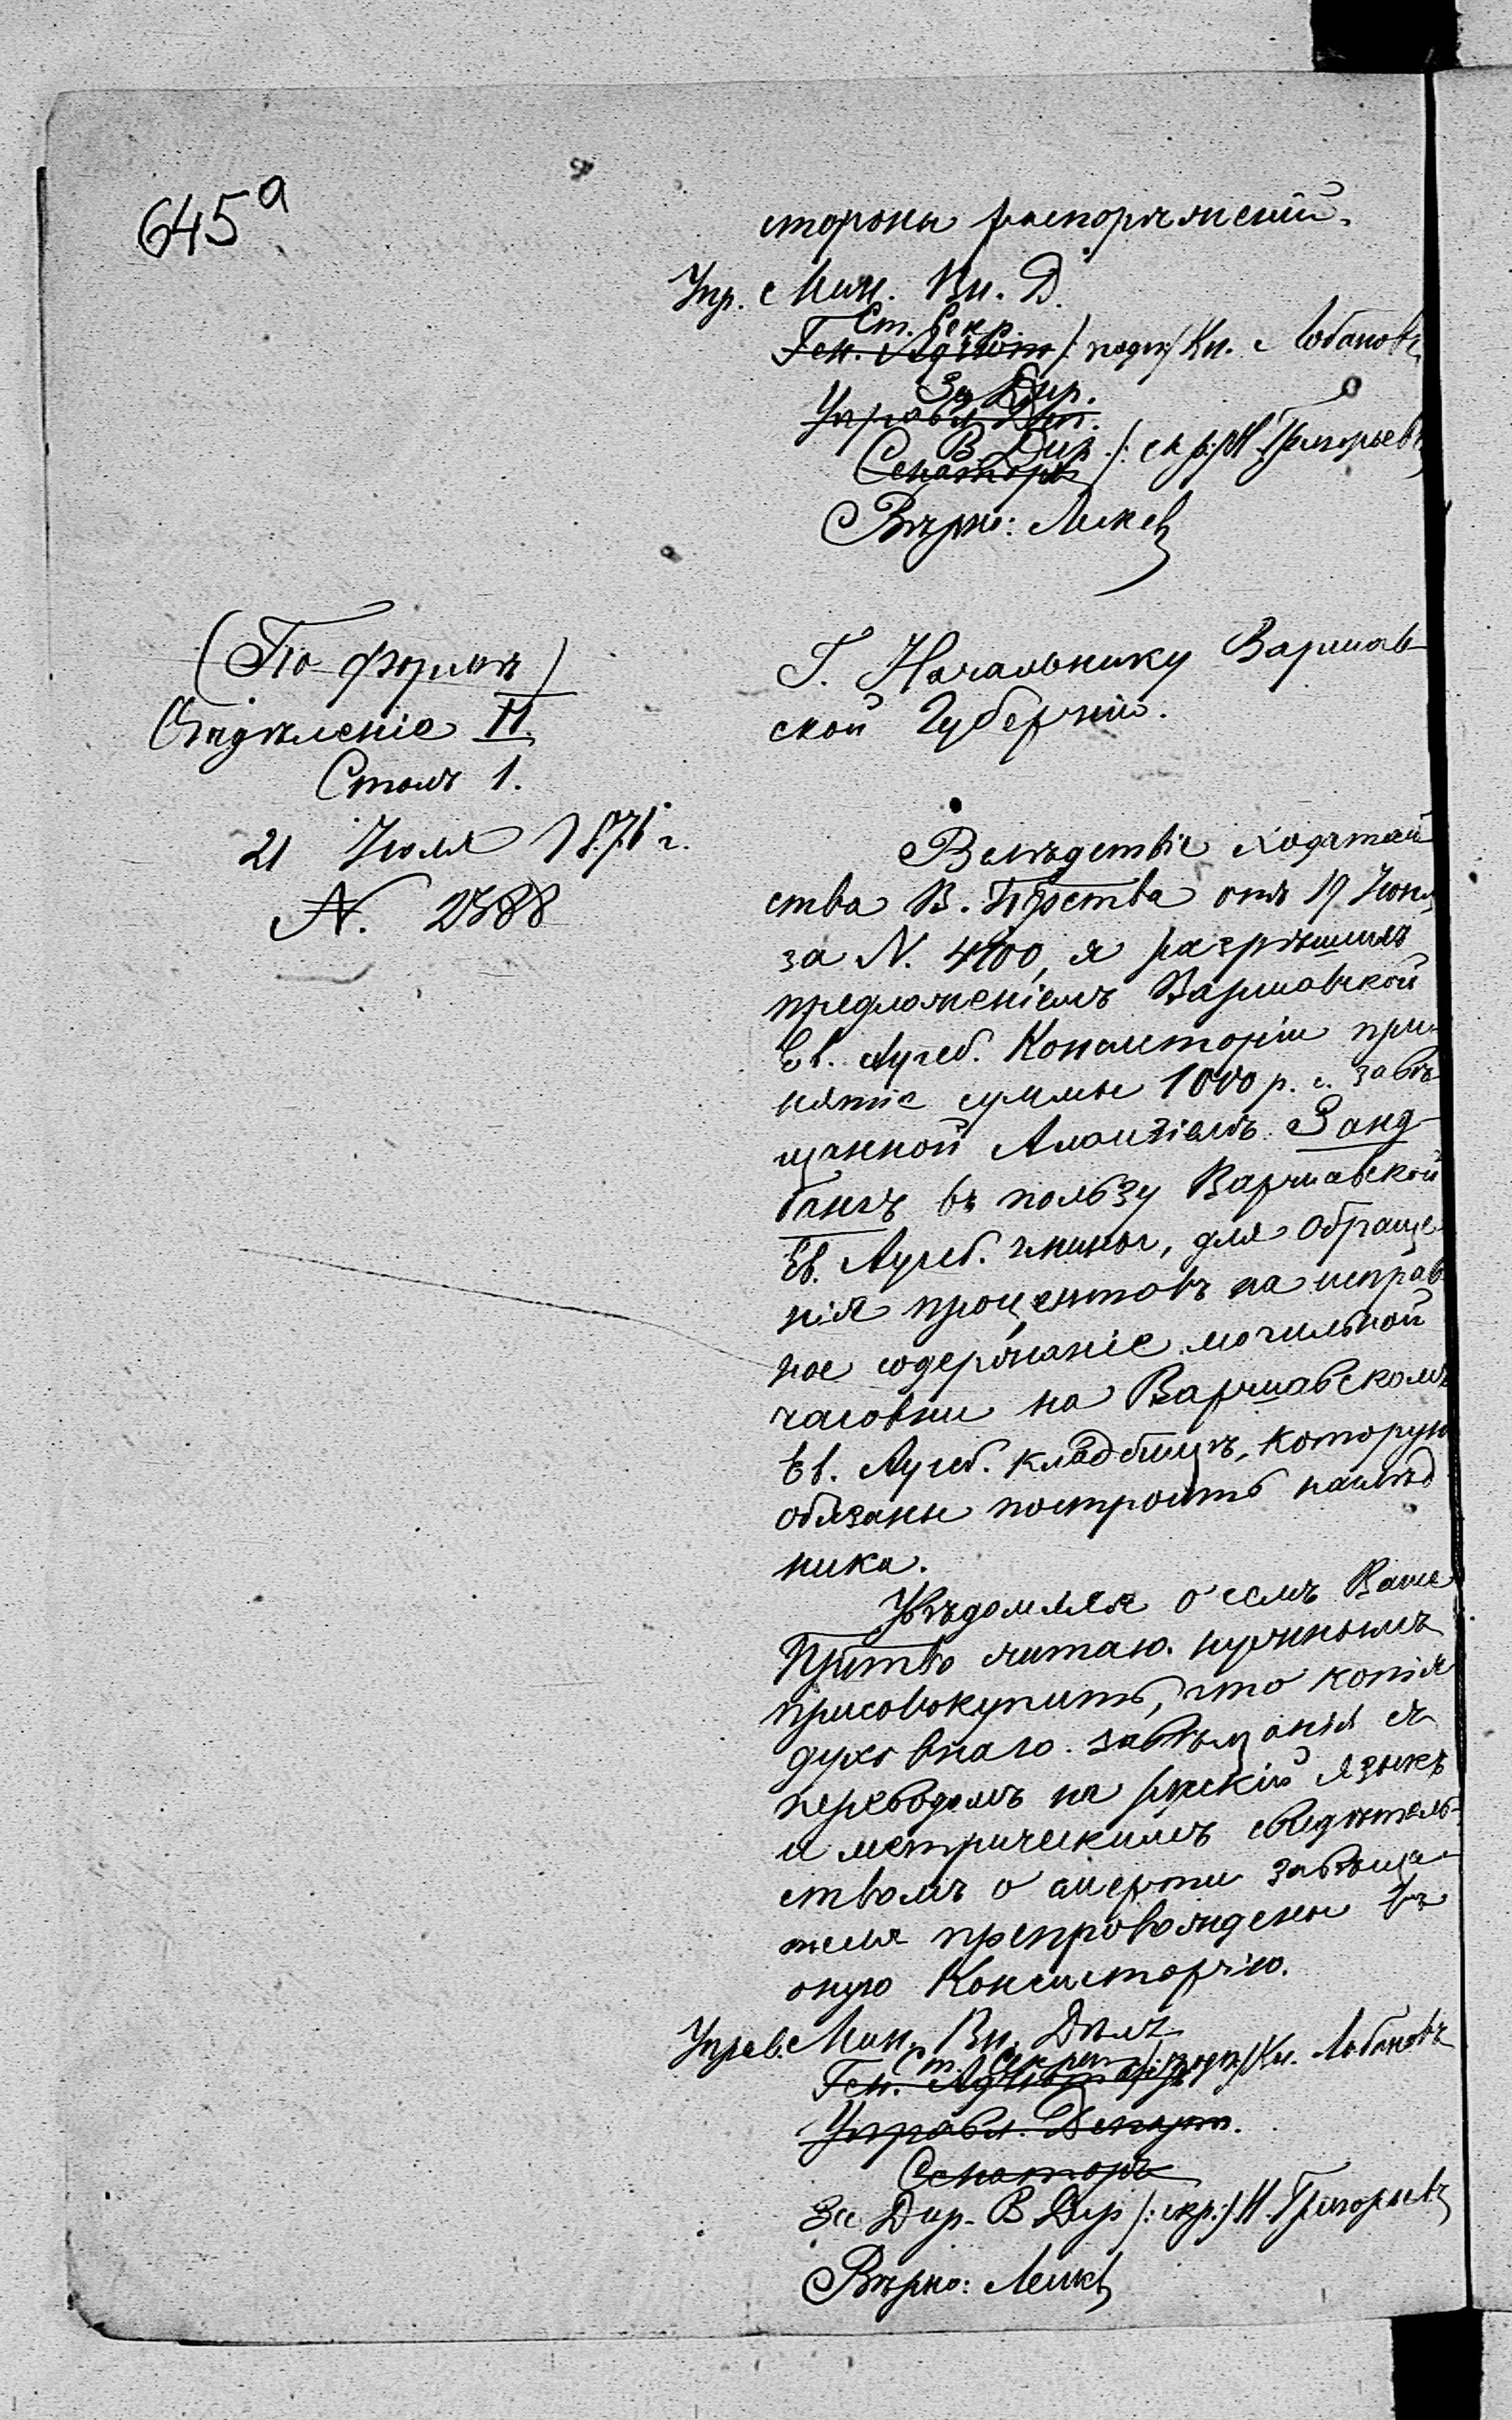 645а
стороны распоряженій.
Упр. Мин. Вн. Д.
Ст. Секр.
Ген. Адъют /: подп:/ Кн. Лобановъ
За Дир.
Управл. Деп.
В. Дир. /: скр:/ Н. Григорьевъ
Сенаторъ
Вѣрно:
(По формѣ)
Отдѣленіе II.
Столъ 1.
21 Іюля 1871 г.
N. 2388
Г. Начальнику Варшав-
ской Губерніи.
Вслѣдствіе ходатай
ства В. Пр̃ства отъ 19 Іюня
за N. 4400, я разрѣшилъ
предложеніемъ Варшавской
Ев. Аугсб. Консисторіи при-
нятіе суммы 1000 р. с. завѣ
щанной Занд-
бангъ въ пользу Варшавской
Ев. Аугсб. гмины, для обраще
нія процентовъ на исправ
ное содержаніе могильной
часовни на Варшавскомъ
Ев. Аугсб. кладбищѣ, которую
обязаны построить наслѣд
ника.
Увѣдомляя о семъ Ваше
Пр̃ство считаю нужнымъ
присовокупить, что копія
духовнаго завѣщанія съ
переводомъ на рускій языкъ
и метрическимъ свидѣтель-
ствомъ о смерти завѣща-
теля препровождены въ
оную Консисторію.
Управ. Мин. Вн. Дѣлъ
Ст. Секрет /: подп:/ Кн. Лобановъ
Ген. Адъютантъ
Управл. Департ.
Сенаторъ
За Дир. В Дир /: скр:/ Н. Григорьевъ
Вѣрно: